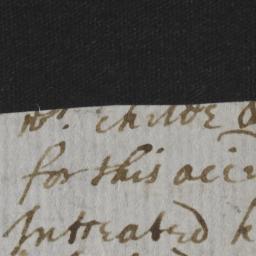 Mr. Childe
for this acci
Intreated h